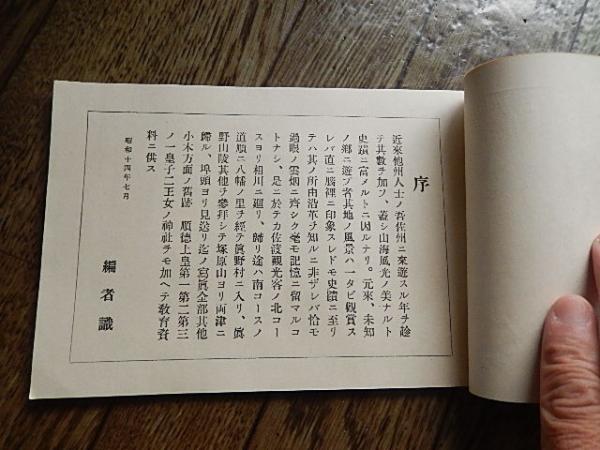 序
近來他州人士ノ吾佐州ニ來遊スル年ヲ趁
テ其數ヲ加フ、蓋シ山海風光ノ美ナルト
史蹟ニ富メルトニ因ルナリ。元來、未知
ノ鄕ニ遊ブ者其地ノ風景ハ一タビ觀賞ス
レバ直ニ腦裡ニ印象スレドモ史蹟ニ至リ
テハ其ノ所由沿革ヲ知ルニ非ザレバ恰モ
過眼ノ雲烟ニ齊シク毫モ記憶ニ留マルコ
トナシ、是ニ於テカ佐渡觀光客ノ北コー
スヨリ相川ニ廻リ、歸リ途ハ南コースノ
道順ニ八幡ノ里ヲ經テ眞野村ニ入リ、眞
野山陵其他ヲ參拜シテ塚原山ヨリ両津ニ
歸ル、埠頭ヨリ見送リ迄ノ寫眞全部其他
小木方面ノ舊跡 順德上皇第一第二第三
ノ一皇子二王女ノ神社ヲモ加ヘテ敎育資
料ニ供ス
昭和十四年七月
編者識